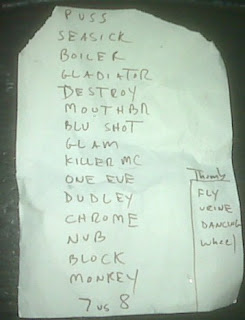 PUSS
SEASICK
BOILER
GLADIATOR
DESTROY
MOUTHBR
BLU SHOT
GLAM
KILLER MC
ONE EVE
DUDLEY
CHROME
NUB
BLOCK
MONKEY
7 vs 8
FLY
URINE
DANCING
Wheel